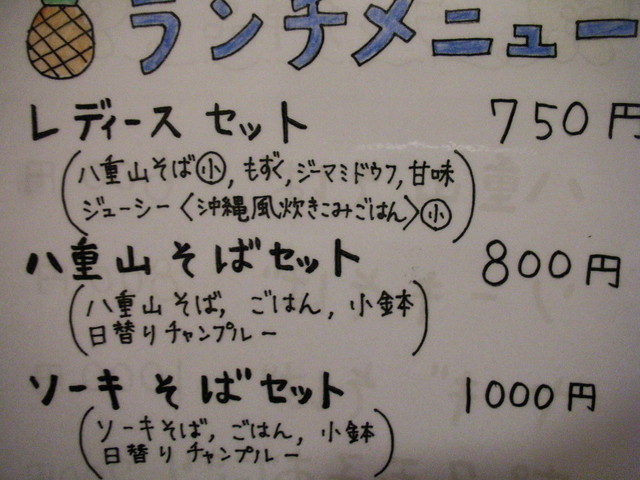 ランチメニュー
レディースセット 750円
(八重山そば㊙小, もずく, ジーマミドウフ, 甘味
ジューシー〈沖縄風炊きこみごはん〉小)
八重山そばセット 800円
(八重山そば, ごはん, 小鉢
日替りチャンプルー)
ソーキそばセット 1000円
(ソーキそば, ごはん, 小鉢
日替りチャンプルー)